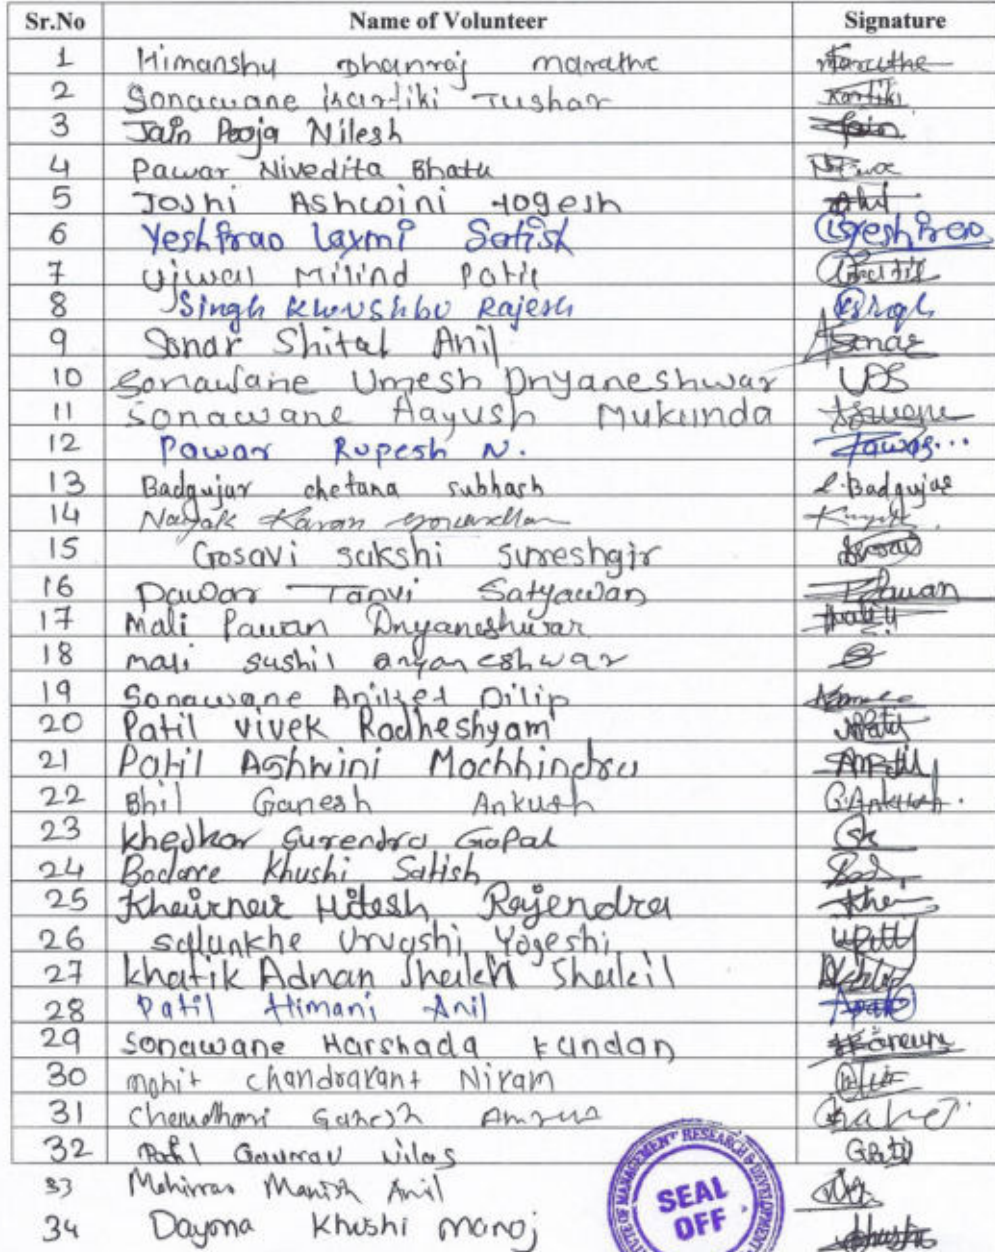 Sr.No Name of Volunteer Signature
1 Himanshu Dhanraj marathe Marathe
2 Sonawane Kartiki Tushar Kartiki
3 Jain Pooja Nilesh Jain
4 Pawar Nivedita Bhatu
5 Joshi Ashwini Yogesh
6 Yeshirao Laxmi Satish Lyeshirao
7 Ujwal Milind Patil UPatil
8 Singh Khushbu Rajesh Singh
9 Sonar Shital Anil Sonar
10 Sonawane Umesh Dnyaneshwar UDS
11 Sonawane Aayush Mukunda
12 Pawar Rupesh N. Pawar...
13 Badgujar chetana subhash C.Badgujar
14 Nayak Karan
15 Gosavi sakshi sureshgir Gosavi
16 Pawar Tanvi Satyawan TPawar
17 Mali Pawan Dnyaneshwar Mali
18 mali sushil dnyaneshwar
19 Sonawane Aniket Dilip
20 Patil vivek Radheshyam
21 Patil Ashwini Machhindra AMPatil
22 Bhil Ganesh Ankush G.Ankush.
23 Khedkar Surendra Gopal Gk
24 Badare Khushi Satish
25 Khairnar Hitesh Rajendra Khe
26 salunkhe Urvashi Yogeshi
27 Khatik Adnan Sheikh Shakil
28 Patil Himani Anil
29 Sonawane Harshada Kundan
30 mohit chandrakant Nikam
31 Choudhari Ganesh Ganesh
32 Patil Gaurav vilas GPatil
33 Manish Anil
34 Dayma Khushi Manoj Khushi
OF MANAGEMENT RESEARCH & DEVELOPMENT
SEAL
OFF